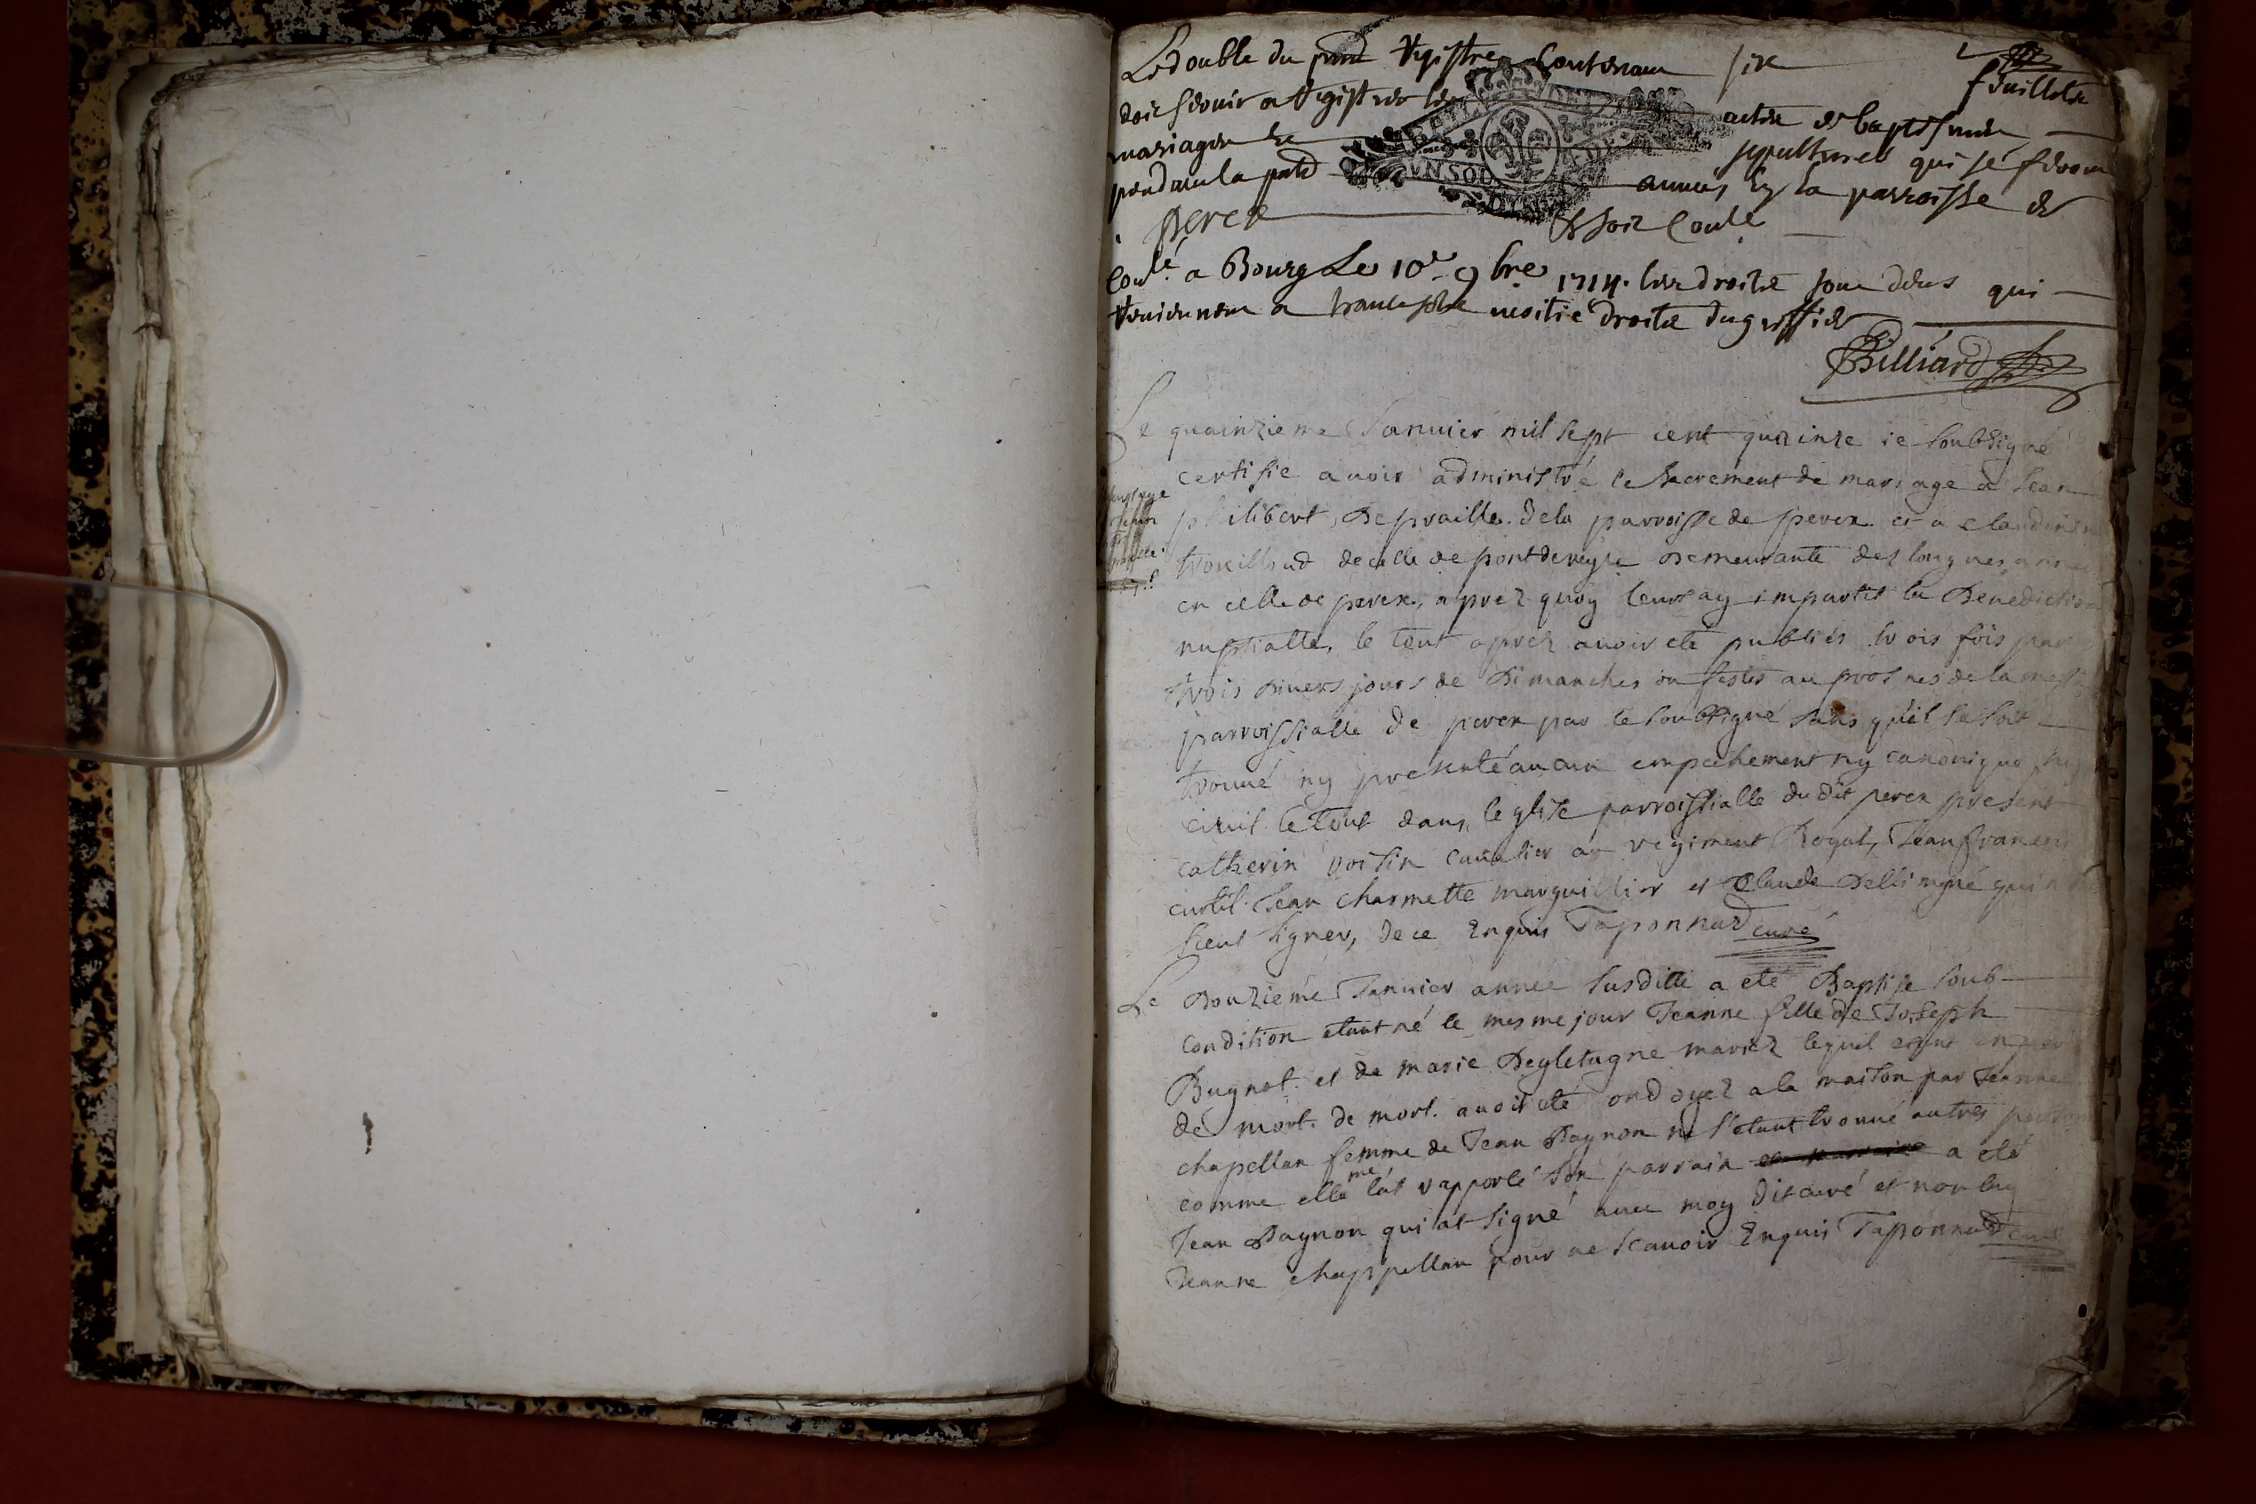 Le double du pnt Registre Contenant six
feuillets
doit servir a registrer les actes de baptesmes
mariages et sepultures qui se feront
pendant la pnte année, En la parroisse de
perex Et soit Conllé
Conllé a Bourg Le 10e 9bre 1714. les droits sont deus qui
reviennent a trante sols moitié droits du greffier
Billiard
Le quainzieme Janvier mil sept cent quainze ie soubsigné
certifie avoir administré le sacrement de mariage a Jean
philibert, De praille. dela parroisse de perex et a claudine
trouilloud de celle de pontdeveyle demeurante dez longues
en celle de perex, aprez quoy leur ay impartit la Benediction
nuptialle, le tout aprez avoir eté publiés trois fois par
trois divers jours de dimanches ou festes au prosnes de la messe
parroissialle de perex par le soubsigné sans qu'il se soit
trouvé ny presenté aucun empechement ny canonique ny
civil le tout dans l'eglise parroissialle du dit perex present
catherin voisin cavalier au regiment Royal, Jean francois
curtil. Jean charmette marguillier et Claude Dellingné qui n
sceut signer, de ce Enquis Taponnad curé
Le Douzieme Janvier année susditte a eté Baptise soub
condition etant né le mesme jour Jeanne fille de Joseph
Bugnot et de marie Degletagne mariez lequel etant en
de mort. de mort. avoit eté ondoyez a la maison par Jeanne
chapellan femme de Jean Pagnon ne s'etant trouvé autres
comme elle me l'at rapporté son parrain a eté
Jean Pagnon qui at signé avec moy dit curé et non lay
Jeanne chappellan pour ne scavoir Enquis Taponnad curé